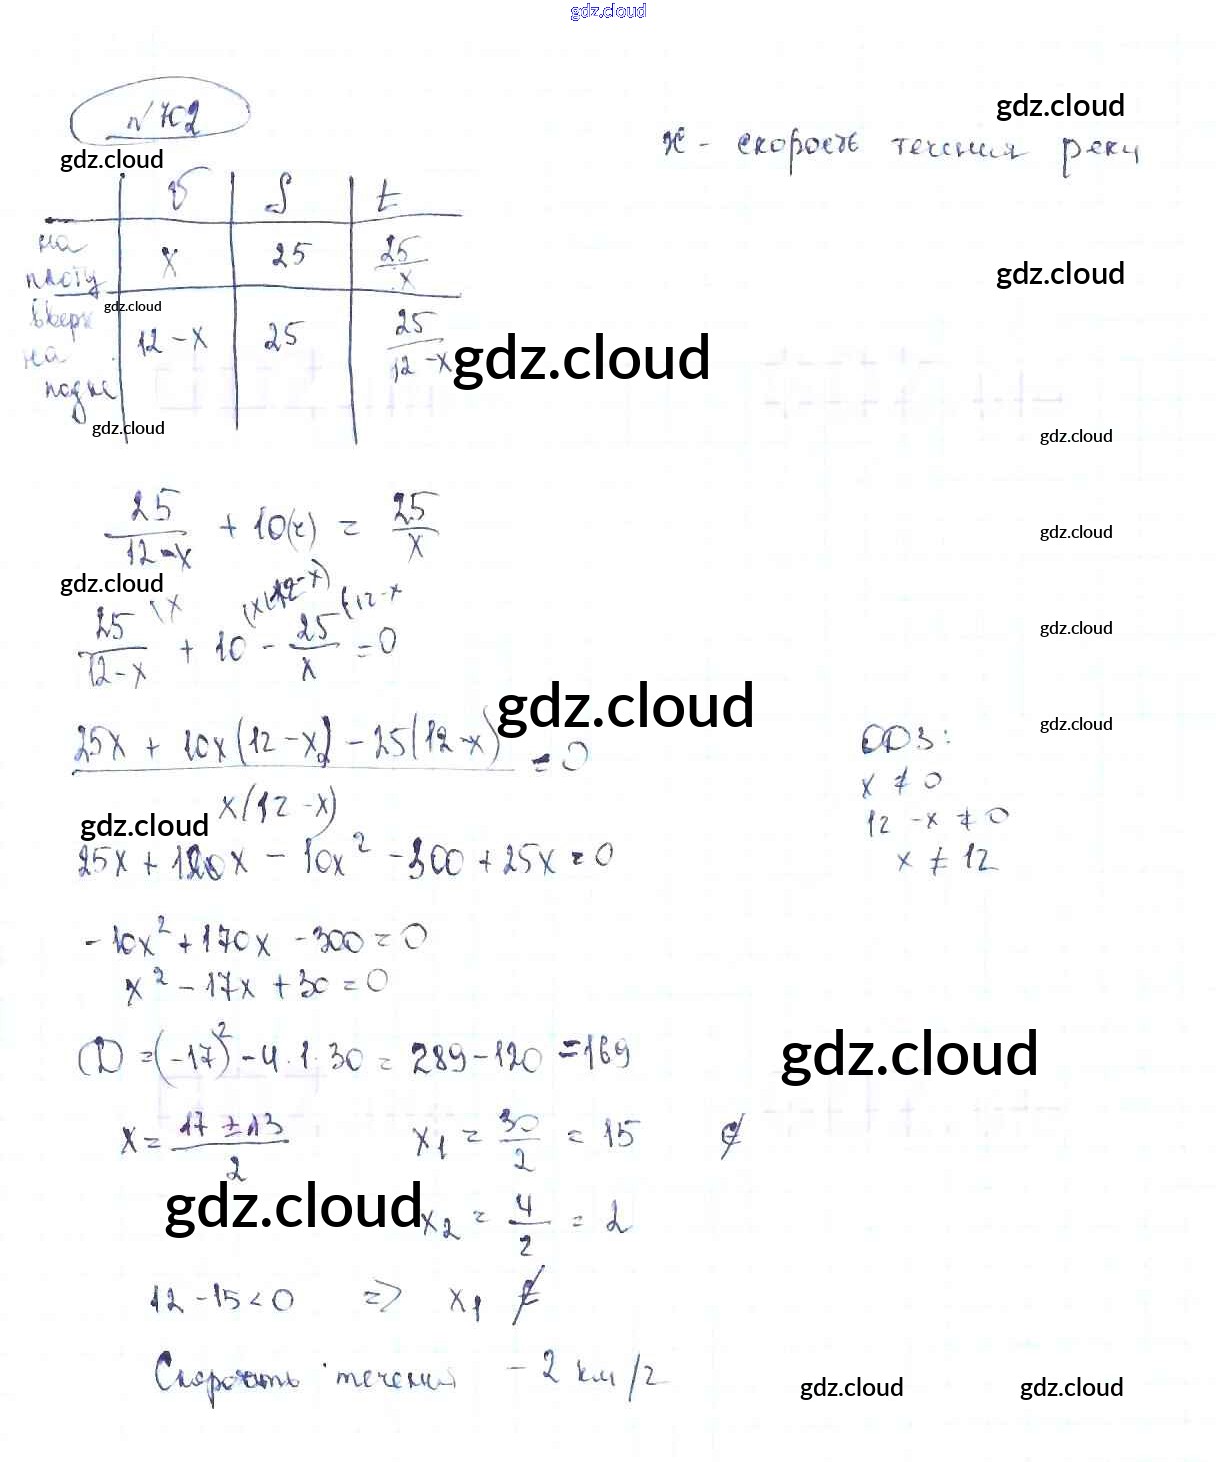 gdz.cloud
№702
gdz.cloud
x - скорость течения реки
gdz.cloud
v S t
на плоту x 25 25/x
gdz.cloud
gdz.cloud
вверх на лодке 12-x 25 25/(12-x)
gdz.cloud
gdz.cloud
gdz.cloud
25/(12-x) + 10(ч) = 25/x
gdz.cloud
gdz.cloud
(x (x(12-x) (12-x
25/(12-x) + 10 - 25/x = 0
gdz.cloud
gdz.cloud
gdz.cloud
(25x + 10x(12-x) - 25(12-x))/(x(12-x)) = 0
ОДЗ:
x ≠ 0
12 - x ≠ 0
x ≠ 12
gdz.cloud
25x + 120x - 10x² - 300 + 25x = 0
-10x² + 170x - 300 = 0
x² - 17x + 30 = 0
D = (-17)² - 4·1·30 = 289 - 120 = 169
gdz.cloud
x = (17 ± 13)/2 x₁ = 30/2 = 15 ∉
gdz.cloud
x₂ = 4/2 = 2
12 - 15 < 0 => x₁ ∉
Скорость течения - 2 км/ч
gdz.cloud
gdz.cloud